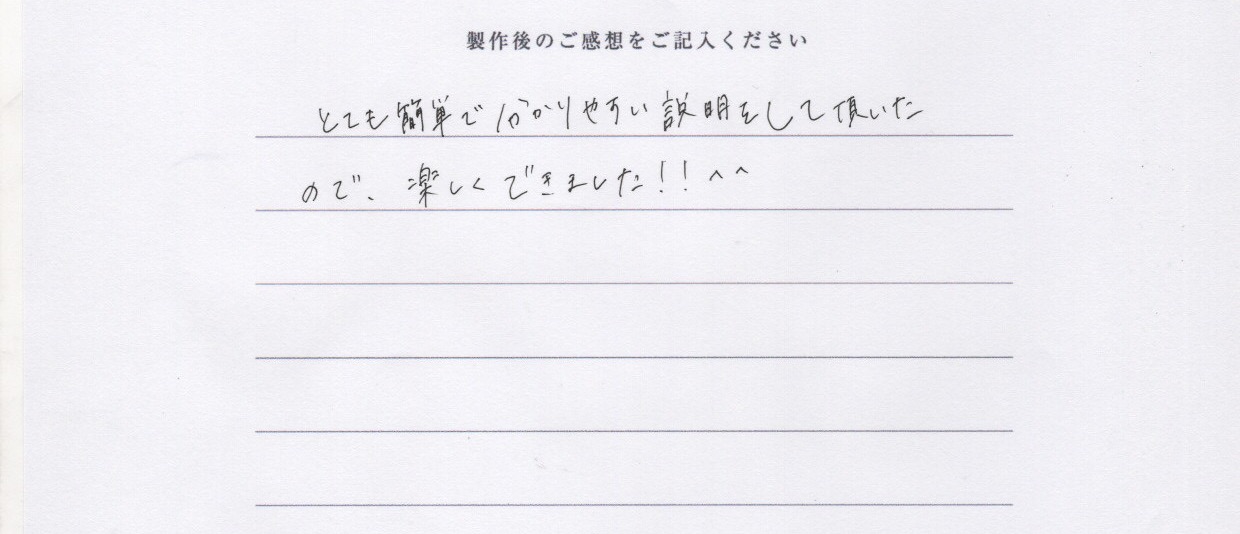 製作後のご感想をご記入ください
とても簡単で分かりやすい説明をして頂いた
ので、楽しくできました!!^^